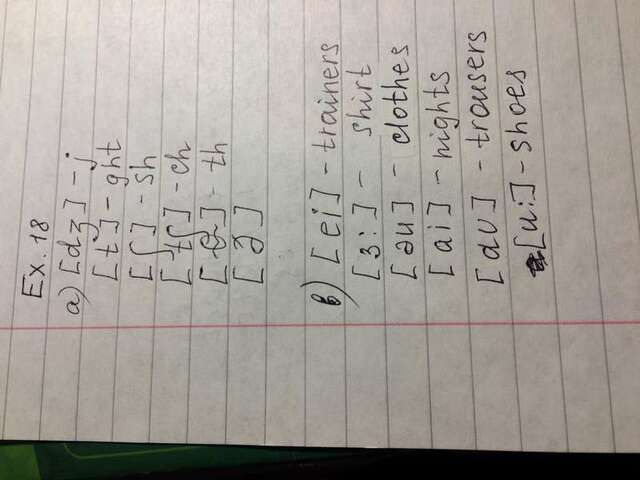 Ex. 18
a) [dʒ] - j
[t] - ght
[ʃ] - sh
[tʃ] - ch
[θ] - th
[ə]
b) [ei] - trainers
[ɜ:] - shirt
[əu] - clothes
[ai] - nights
[aʊ] - trousers
[u:] - shoes